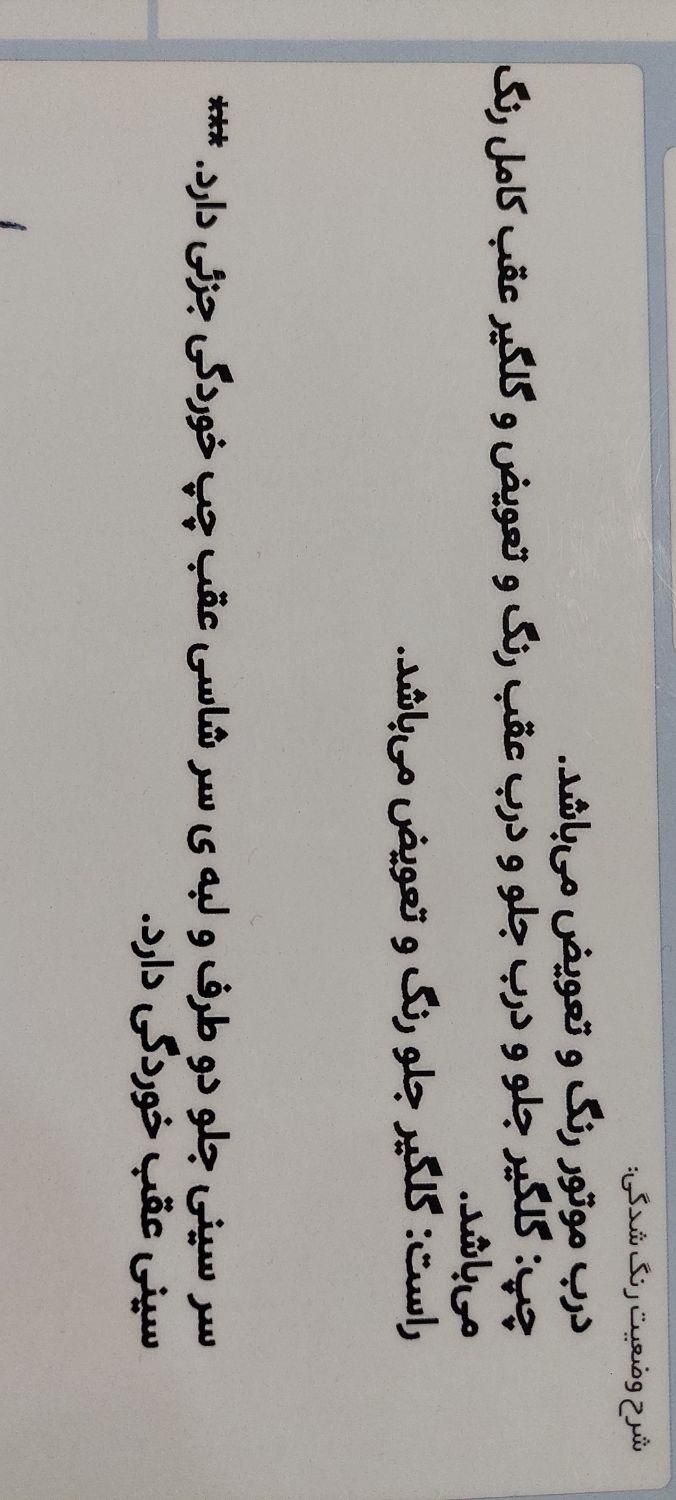 شرح وضعیت رنگ شدگی:
درب موتور رنگ و تعویض می‌باشد.
چپ: گلگیر جلو و درب جلو و درب عقب رنگ و تعویض و گلگیر عقب کامل رنگ
می‌باشد.
راست: گلگیر جلو رنگ و تعویض می‌باشد.
سر سینی جلو دو طرف و لبه ی سر شاسی عقب چپ خوردگی جزئی دارد. ***
سینی عقب خوردگی دارد.